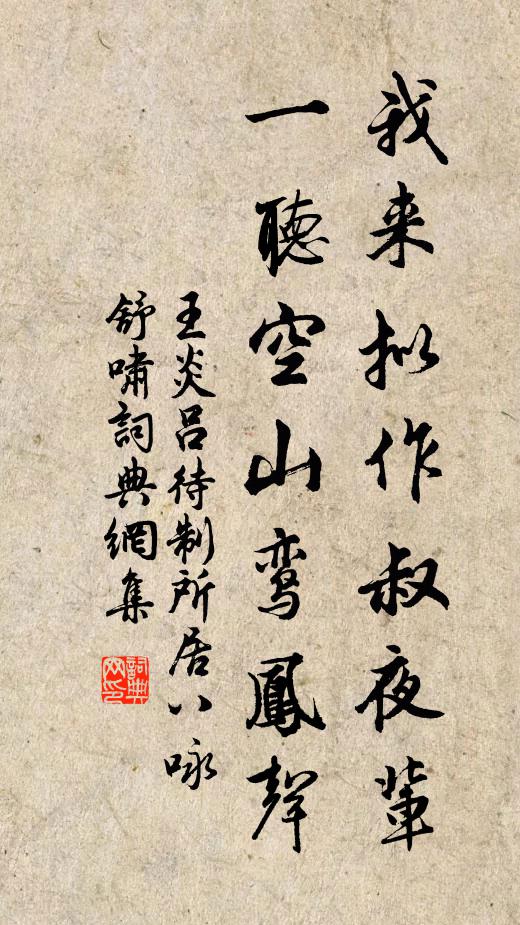 我来拟作叔夜輩
一聽空山鸾鳳聲
王炎吕待制所居八咏
舒啸詞典網集
詞典网印